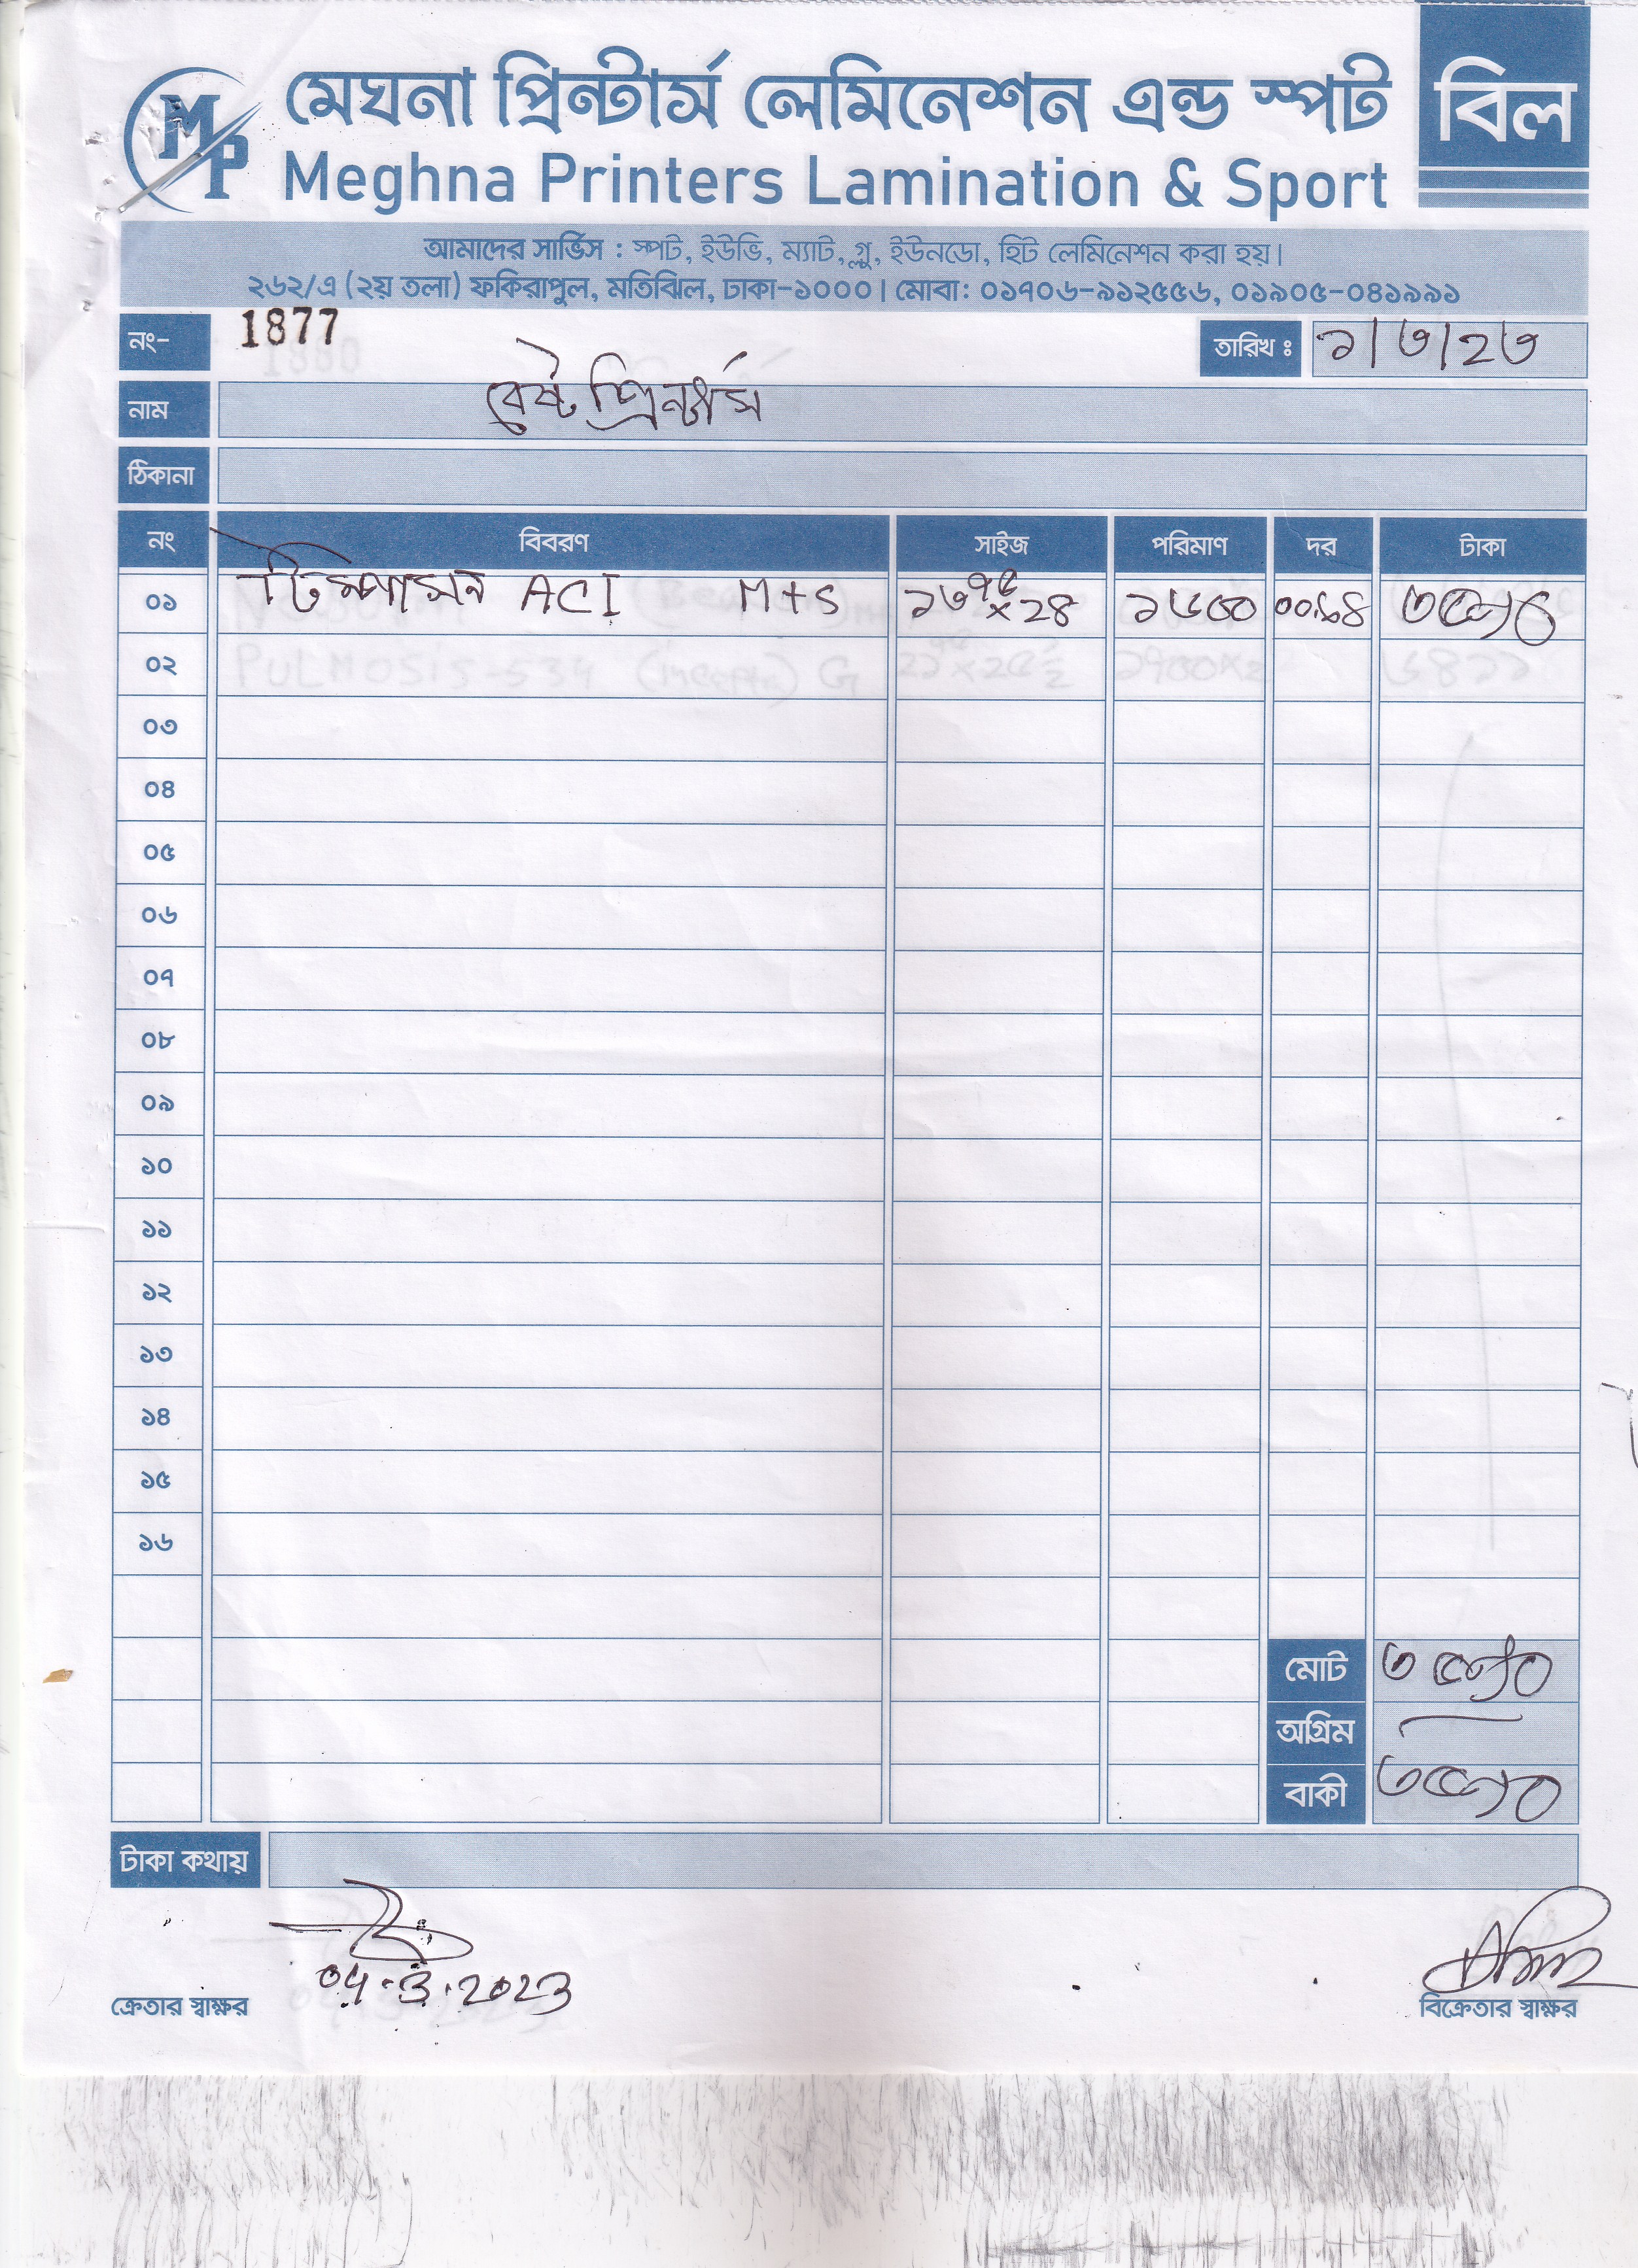 MP
মেঘনা প্রিন্টার্স লেমিনেশন এন্ড স্পট
বিল
Meghna Printers Lamination & Sport
আমাদের সার্ভিস : স্পট, ইউভি, ম্যাট, গ্লু, ইউনডো, হিট লেমিনেশন করা হয়।
২৬২/এ (২য় তলা) ফকিরাপুল, মতিঝিল, ঢাকা-১০০০। মোবা: ০১৭০৬-৯১২৫৫৬, ০১৯০৫-০৪১৯৯১
নং- 1877 তারিখ ঃ ১/৩/২৩
নাম বেষ্ট প্রিন্টার্স
ঠিকানা
নং বিবরণ সাইজ পরিমাণ দর টাকা
০১ ACI M+S ১৬৭৫ × ২৪
০২ PULMOSIS-534
০৩
০৪
০৫
০৬
০৭
০৮
০৯
১০
১১
১২
১৩
১৪
১৫
১৬
মোট
অগ্রিম
বাকী
টাকা কথায়
04-3-2023
ক্রেতার স্বাক্ষর বিক্রেতার স্বাক্ষর